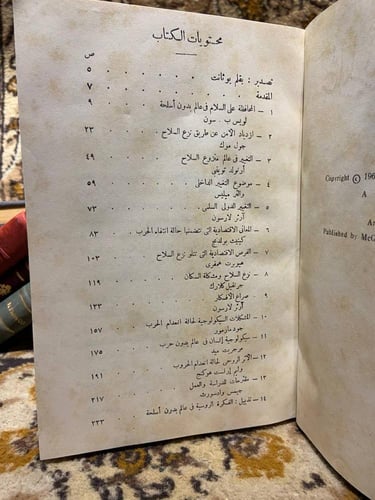 محتويات الكتاب
ص
تصدير : بقلم يوثانت . . . . . . ٥
المقدمة . . . . . . . . ٧
١ – المحافظة على السلام في عالم بدون أسلحة . . ٩
لويس ب . سون
٢ – ازدياد الأمن عن طريق نزع السلاح . . . ٢٣
جول موك
٣ – التغيير في عالم منزوع السلاح . . . . ٤٩
أرنولد توينبي
٤ – موضوع التغيير الداخلى . . . . . ٥٩
والتر ميليس
٥ – التغيير الدولى السلمى . . . . . ٧٣
آرثر لارسون
٦ – المعانى الاقتصادية التى تتضمنها حالة انتفاء الحرب . ٨٣
كينيث بولدنج
٧ – الفرص الاقتصادية التى تتلو نزع السلاح . . ١٠٣
هيوبرت همفرى
٨ – نزع السلاح ومشكلة السكان . . . . ١١٩
جرانفيل كلارك
٩ – صراع الأفكار . . . . . . ١٣٣
آرثر لارسون
١٠ – المشكلات السيكولوجية لحالة انعدام الحرب . . ١٥٧
جود مارمور
١١ – سيكولوجية إنسان فى عالم بدون حرب . . ١٧٥
مرجريت ميد
١٢ – الأثر الروحى لحالة انعدام الحروب . . . ١٩١
وليم إرنست هوكنج
١٣ – مقترحات للدراسة والعمل . . . . ٢١٧
جيمس وادسورث
١٤ – تذييل : الفكرة الروسية فى عالم بدون أسلحة . . ٢٣٣
Copyright © 196
A
Ar
Published by McG